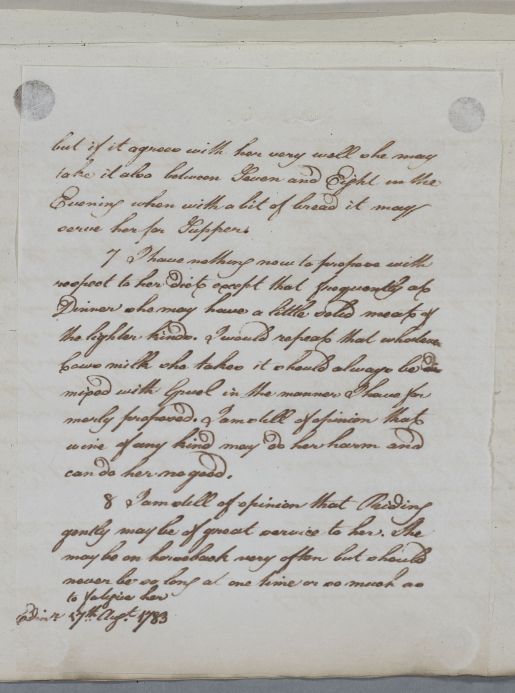 but if it agrees with her very well she may
take it also between Seven and Eight in the
Evening when with a bit of bread it may
serve her for Supper.
7 I have nothing now to propose with
respect to her diet except that frequently at
Dinner she may have a little solid meat of
the lighter kinds. I would repeat that whatever
Cows milk she takes it should always be
mixed with Gruel in the manner I have for
merly proposed. I am still of opinion that
wine of any kind may do her harm and
can do her no good.
8 I am still of opinion that Riding
gently may be of great service to her. She
may be on horseback very often but should
never be so long at one time or so much as
to fatigue her
Edinr 17th Augt. 1783